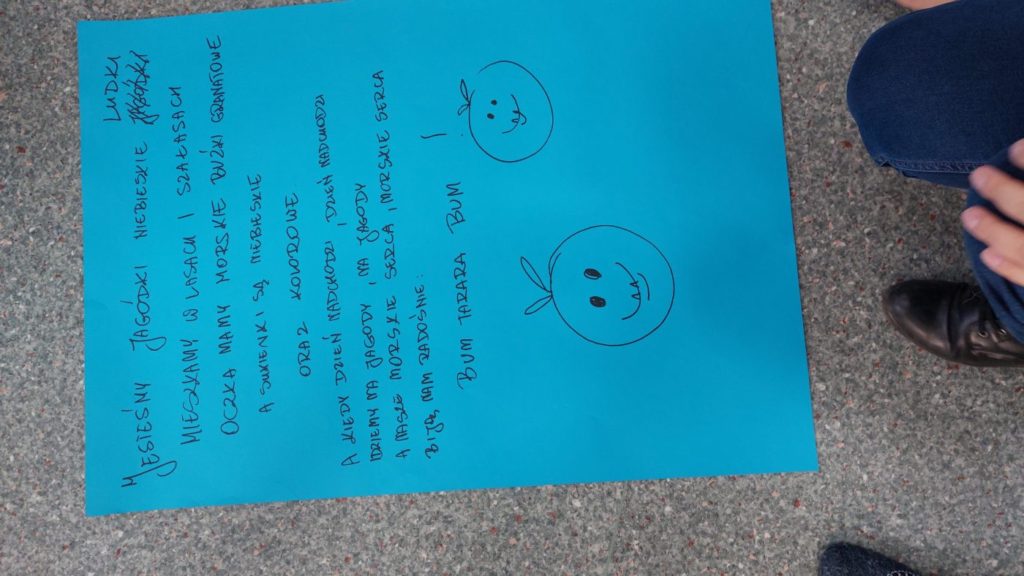 MY JESTEŚMY JAGÓDKI NIEBIESKIE LUDKI
MIESZKAMY W LASACH I SZAŁASACH
OCZKA MAMY MORSKIE BUŹKI GRANATOWE
A SUKIENKI SĄ NIEBIESKIE
ORAZ KOLOROWE
A KIEDY DZIEŃ NADCHODZI, DZIEŃ NADCHODZI
IDZIEMY NA JAGODY, NA JAGODY
A NASZE MORSKIE SERCA, MORSKIE SERCA
BIJĄ NAM RADOŚNIE:
BUM TARARA BUM !